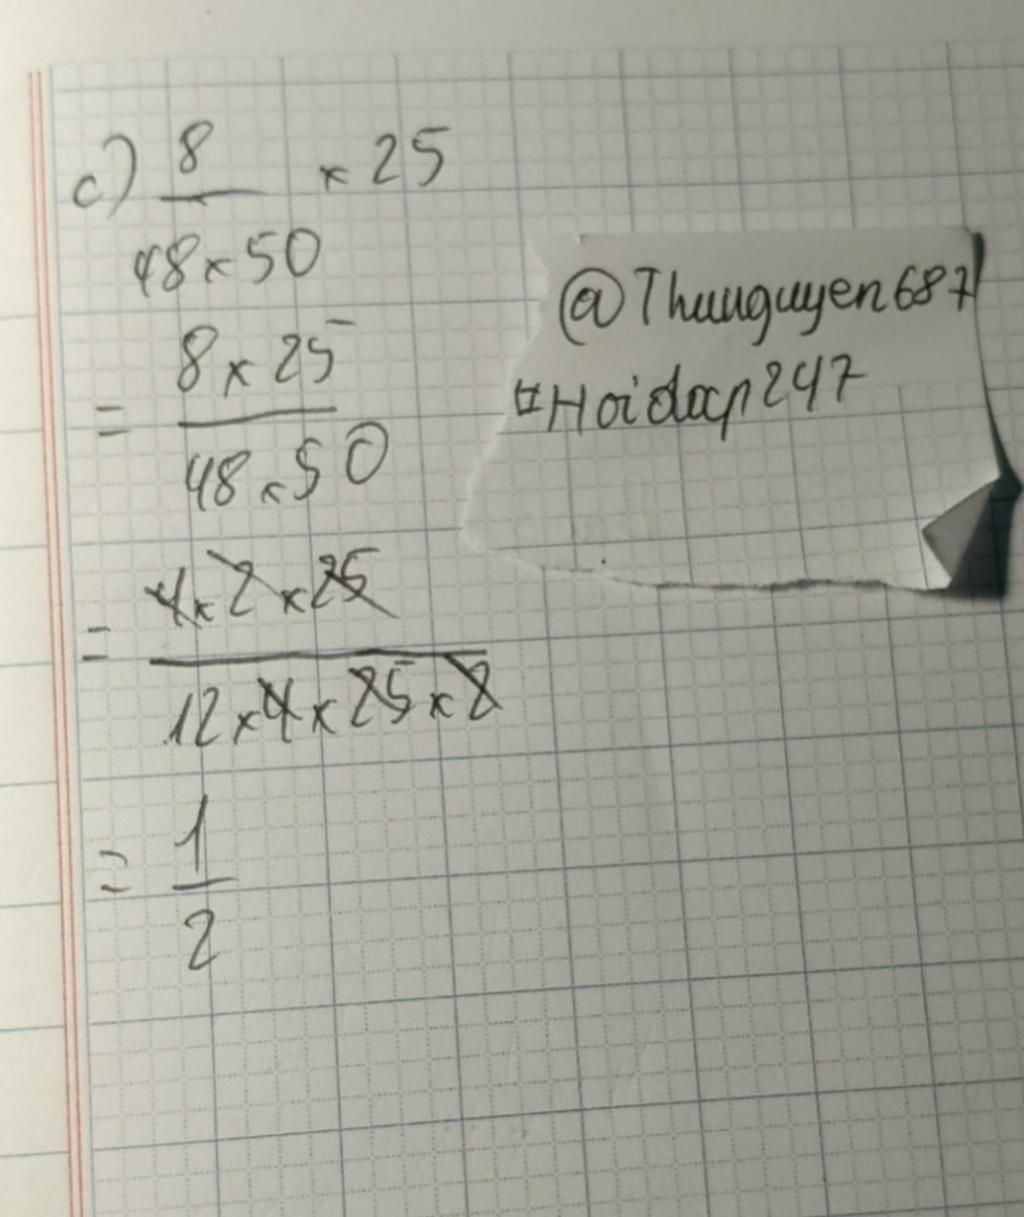 c) 8/(48 × 50) × 25
= (8 × 25)/(48 × 50)
= (4 × 2 × 25)/(12 × 4 × 25 × 2)
= 1/2
@Thuuguyen687
#Hoidap247